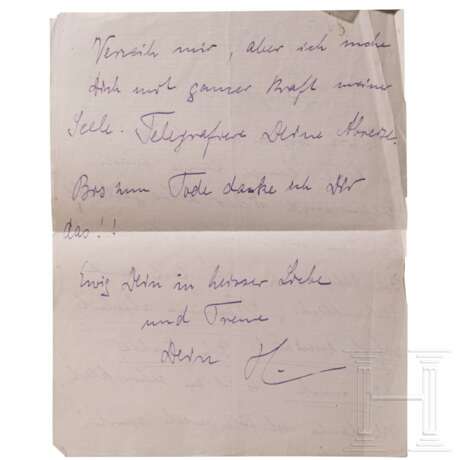 Verzeih mir, aber ich
dich mit ganzer Kraft meiner
Seele. Telegrafiere Deine Abreise.
Bis zum Tode danke ich Dir
das!!
Ewig Dein in heisser Liebe
und Treue
Dein H.